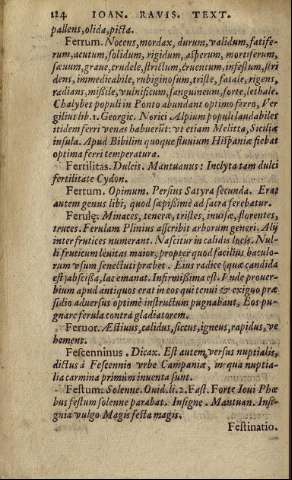 124. IOAN. RAVIS. TEXT.
pallens, olida, picta.
Ferrum. Nocens, mordax, durum, validum, fatife-
rum, acutum, solidum, rigidum, asperum, mortiferum,
sæuum, graue, crudele, strictum, cruentum, infestum, stri
dens, immedicabile, rubiginosum, triste, fatale, rigens,
radians, missile, vulnificum, sanguineum, forte, lethale.
Chalybes populi in Ponto abundant optimo ferro, Ver
gilius lib. 1. Georgic. Norici Alpium populi laudabiles
itidem ferri venas habuerũt: vt etiam Melitta, Siciliæ
insula. Apud Bibilim quoque fluuium Hispaniæ fiebat
optima ferri temperatura.
Fertilitas. Dulcis. Mantuanus: Inclyta tam dulci
fertilitate Cydon.
Fertum. Opimum. Persius Satyra secunda. Erat
autem genus libi, quod sæpissimè ad sacra ferebatur.
Ferulę. Minaces, teneræ, tristes, inuisæ, florentes,
truces. Ferulam Plinius ascribit arborum generi. Alij
inter frutices numerant. Nascitur in calidis locis. Nul-
li fruticum leuitas maior, propter quod facilius baculo-
rum vsum senectuti præbet. Eius radice (quæ candida
est) abscissa, lac emanat. Infirmissima est. Vnde prouer-
bium apud antiquos erat in eos qui tenui & exiguo præ
sidio aduersus optimè instructum pugnabant, Eos pu-
gnare ferula contra gladiatorem.
Feruor. Æstiuus, calidus, siccus, igneus, rapidus, ve
hemens.
Fescenninus. Dicax. Est autem versus nuptialis,
dictus à Fescennio vrbe Campaniæ, in qua nuptia-
lia carmina primùm inuenta sunt.
Festum. Solenne. Ouid. li. 2. Fast. Forte Ioui Phœ
bus festum solenne parabat. Insigne. Mantuan. Inse-
gnia vulgo Magis festa magis.
Festinatio.